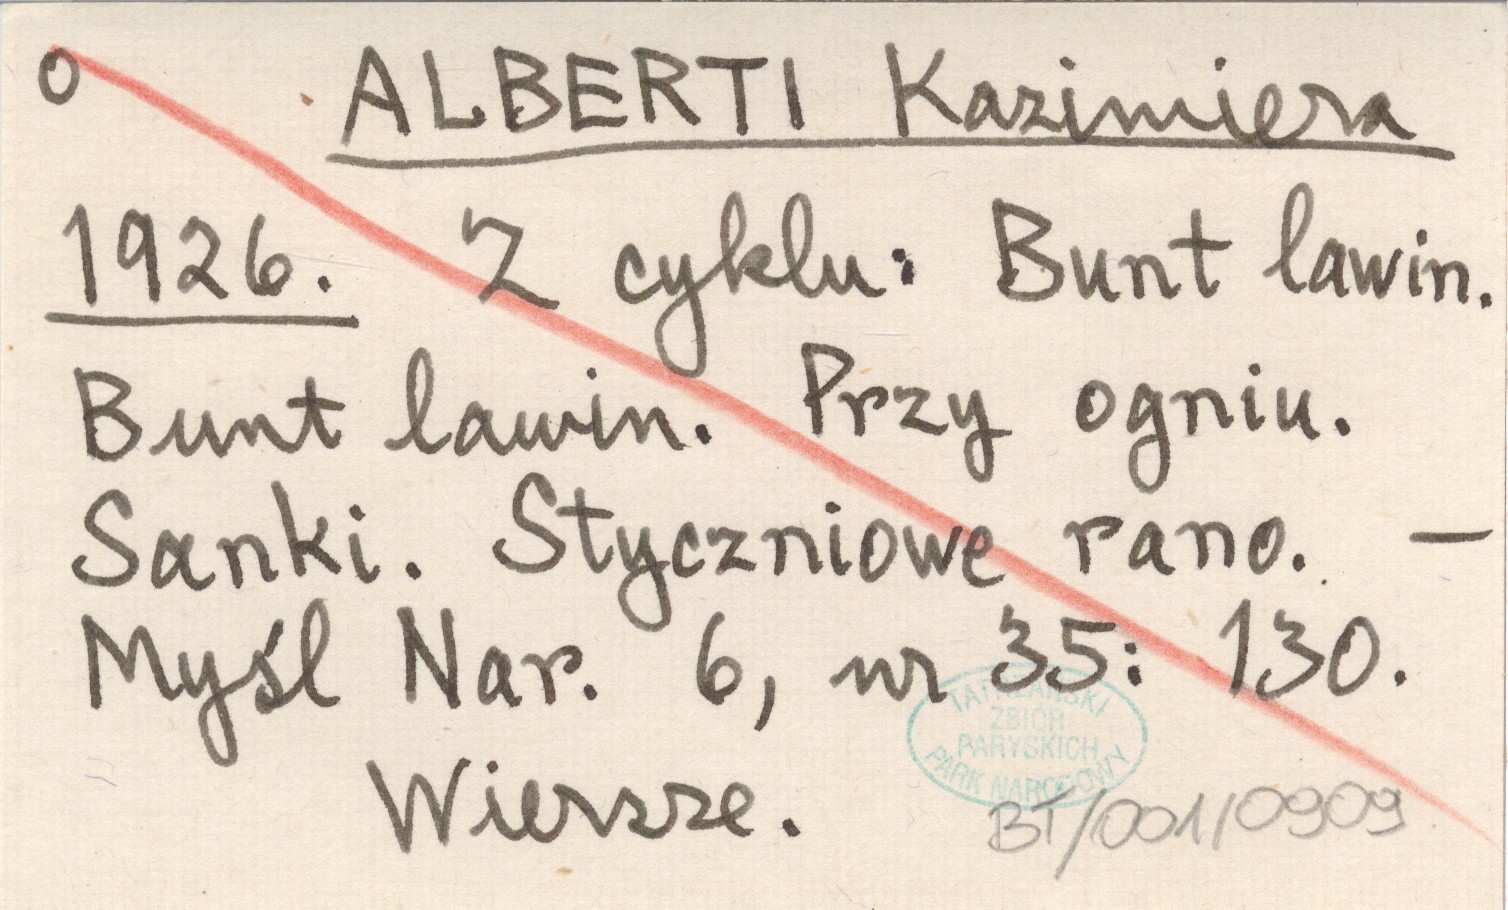 o ALBERTI Kazimiera
1926. Z cyklu: Bunt lawin.
Bunt lawin. Przy ogniu.
Sanki. Styczniowe rano. —
Myśl Nar. 6, nr 35: 130.
Wiersze.
TATRZAŃSKI
ZBIÓR
PARYSKICH
PARK NARODOWY
BT/001/0909